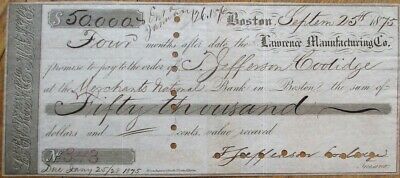 $50,000 Boston, Septem 25th 1875
Four months after date, the Lawrence Manufacturing Co.
promise to pay to the order of T Jefferson Coolidge
at the Merchants National Bank in Boston, the sum of
Fifty thousand
dollars and cents, value received
No 343 T. Jefferson Coolidge
Due Jany 25/28 1875 Treasurer.